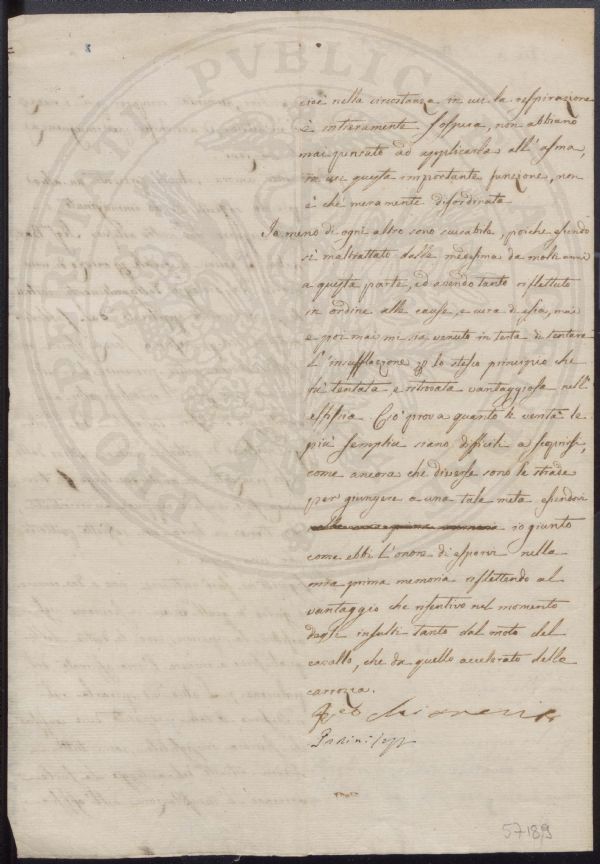 cioè nella circostanza in cui la respirazione
è intieramente sospesa, non abbiano
mai pensato ad applicarla all'asma,
in cui questa importante funzione, non
è che meramente disordinata
Io meno di ogni altro sono scusabile, poiche essendo
sì maltrattato dalla medesima da molti anni
a questa parte, ed avendo tanto riflettuto
in ordine alle cause, e cura di essa, mai
e poi mai mi sia venuto in testa di tentare
L'insufflazione lo stesso principio che
fù tentata e ritrovata vantaggiosa nell'
asfissia. Ciò prova quanto le verità le
più semplici siano difficili a scoprirsi,
come ancora che diverse sono le strade
per giungere a una tale meta essendovi
io giunto
come ebbi L'onore di esporvi nella
mia prima memoria riflettendo al
vantaggio che risentivo nel momento
degli insulti tanto dal moto del
cavallo, che da quello accelerato della
carrozza.
57189
PROSPERITATI PVBLICAE